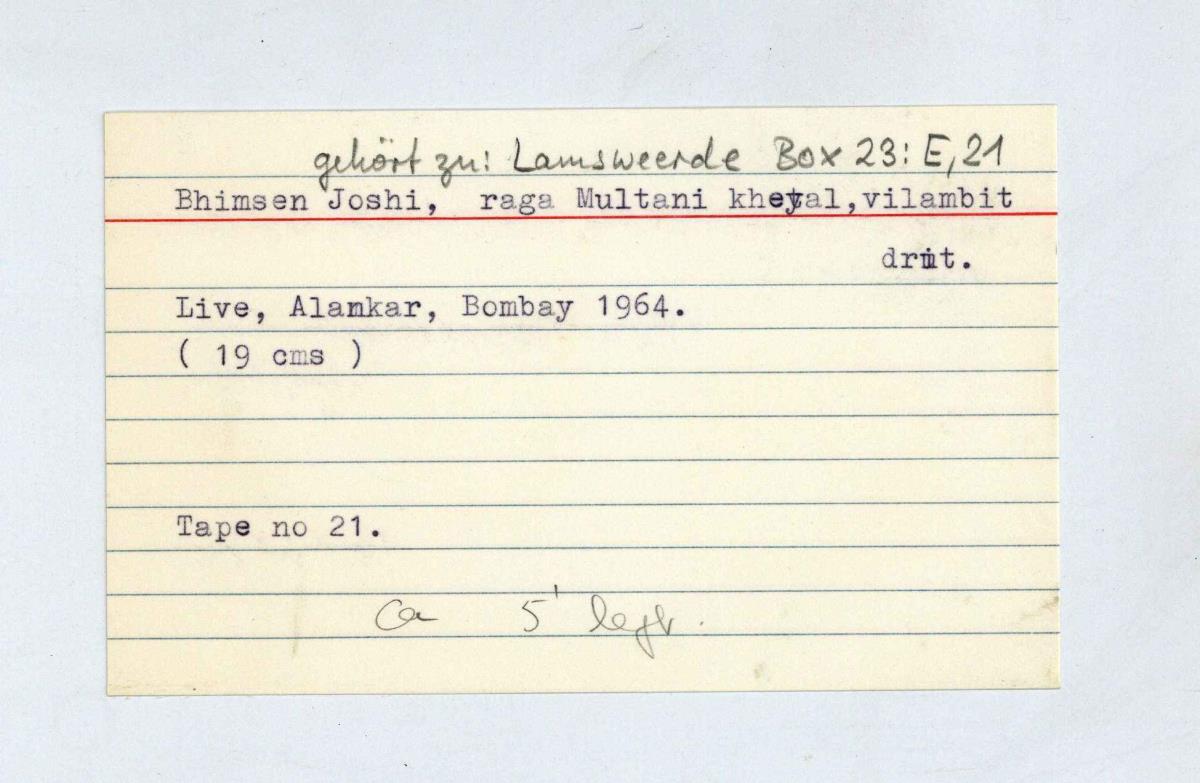 gehört zu: Lamsweerde Box 23: E, 21
Bhimsen Joshi, raga Multani kheyal, vilambit
drut.
Live, Alamkar, Bombay 1964.
( 19 cms )
Tape no 21.
Ca 5'